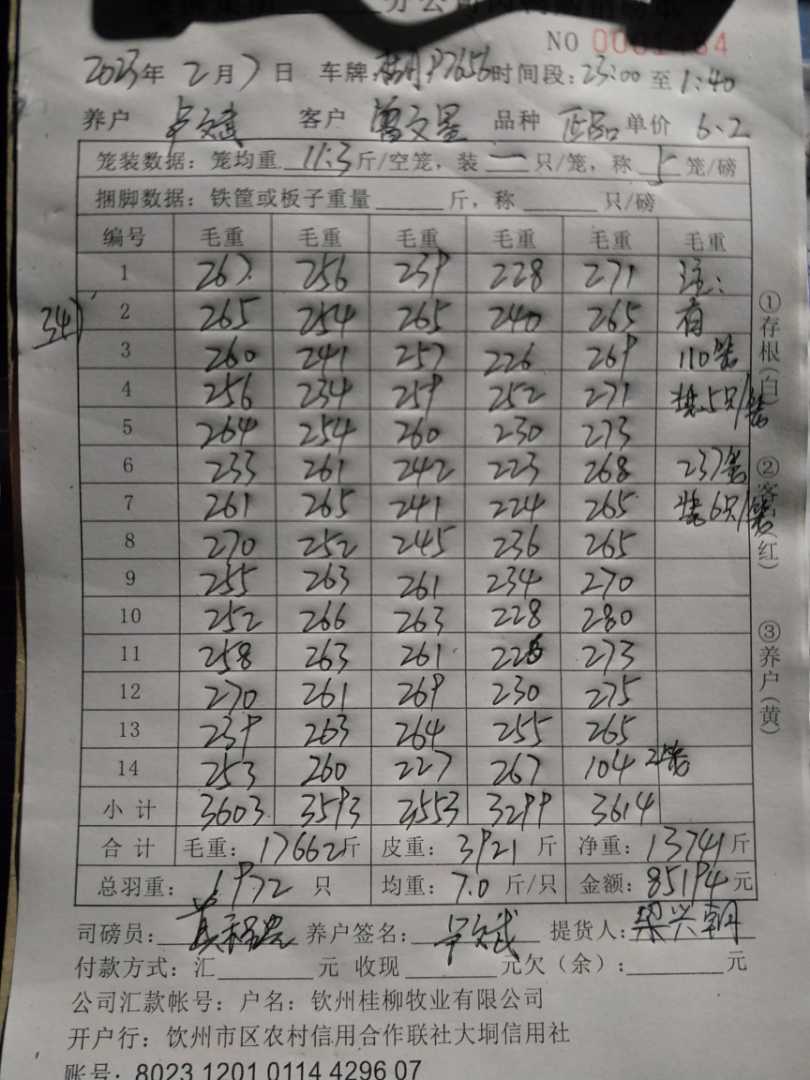 NO 0001484
2023年 2月7日 车牌 P7656 时间段: 23:00 至 1:40
养户 卢文斌 客户 曾文星 品种 正品 单价 6.2
笼装数据: 笼均重 11.3 斤/空笼, 装 一 只/笼, 称 5 笼/磅
捆脚数据: 铁筐或板子重量 斤, 称 只/磅
编号 毛重 毛重 毛重 毛重 毛重 毛重
1 267 256 239 228 271 注:
2 265 254 265 240 265 有
3 260 241 257 226 269 110笼
4 256 234 259 252 271 装5只/笼
5 264 254 260 230 273
6 233 261 242 223 268 237笼
7 261 265 241 224 265 装6只/笼
8 270 252 245 236 265
9 255 263 261 234 270
10 252 266 263 228 280
11 258 263 261 226 273
12 270 261 269 230 275
13 239 263 264 255 265
14 253 260 227 267 104 2笼
小计 3603 3593 3553 3299 3614
合计 毛重: 17662斤 皮重: 3921 斤 净重: 13741斤
总羽重: 1972 只 均重: 7.0 斤/只 金额: 85194元
司磅员: 养户签名: 卢文斌 提货人: 梁兴朝
付款方式: 汇 元 收现 元欠(余): 元
公司汇款帐号: 户名: 钦州桂柳牧业有限公司
开户行: 饮州市区农村信用合作联社大垌信用社
账号: 8023 1201 0114 4296 07
347
①存根(白)
②客户(红)
③养户(黄)